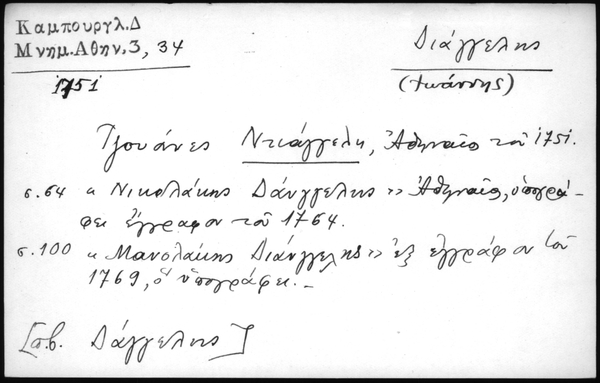 Καμπουργλ.Δ
Μνημ.Αθην.3, 34
1751
Διάγγελης
(Ιωάννης)
Τζουάνες Ντιάγγελη, Ἀθηναῖος τοῦ 1751.
σ.64 « Νικολάκης Δάνγγελης » Ἀθηναῖος, ὑπογρά-
φει ἔγγραφον τοῦ 1764.
σ.100 « Μανολάκης Διάνγγελης » ἐξ ἐγγράφου τοῦ
1769, ὃ ὑπογράφει.-
[πβ. Δάγγελης]